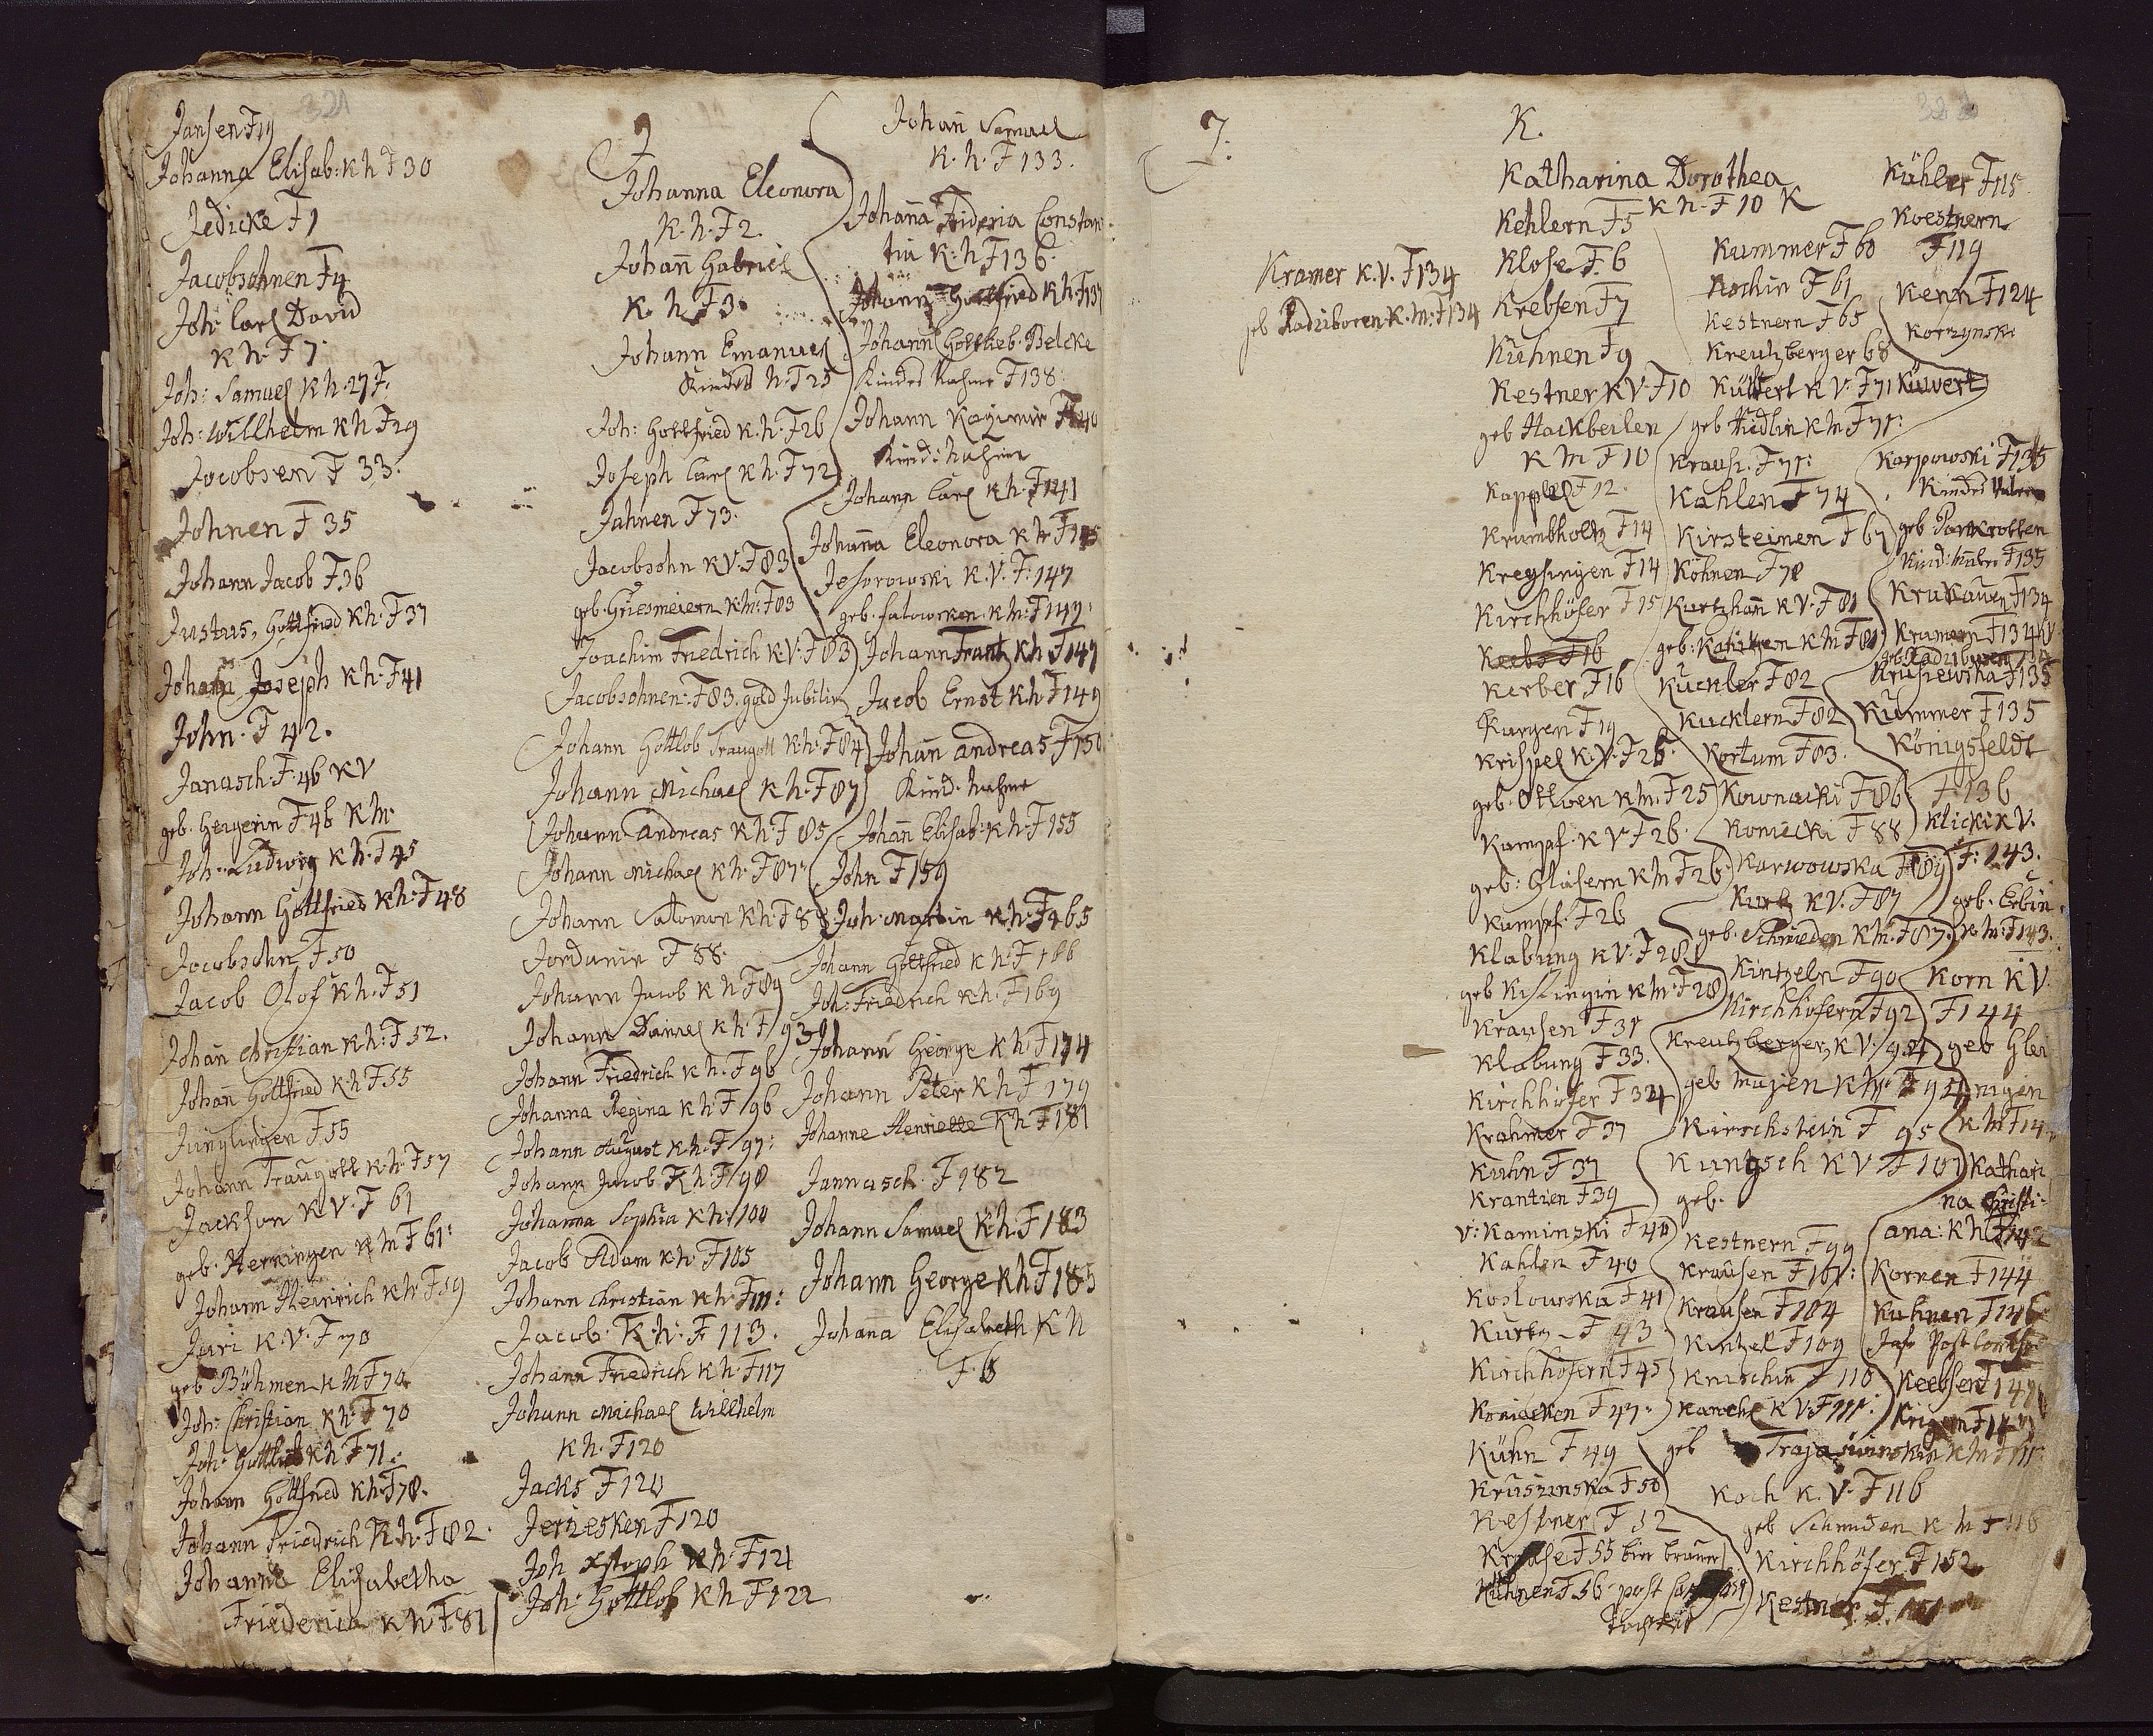 321
Jansen F 19
Johanna Elisab: K h F 30
Jedicke F 1
Jacobsohnen F 4
Joh: Carl David
K h. F 7.
Joh: Samuel K h. 27 F.
Joh: Willhelm K h F 29
Jacobsen F 33.
Johnen F 35
Johann Jacob F 36
Justus, Gottfried K h. F 37
Johann Joseph K h. F 41
John. F 42.
Janasch. F. 46 K V
geb. Geigerin F 46 K M.
Joh. Ludwig K h. F 45
Johann Gottfried K h. F 48
Jacobsohn F 50
Jacob Olof K h. F 51
Johañ Christian K h: F 52.
Johañ Gottfried K h F 55
Jünglingen F 55
Johann Traugott K h. F 57
Jackson K V. F 61
geb. Herringen K M F 61:
Johann Heinrich K h F 59
Juri K. V. F 70
geb Böhmen K M F 70
Joh: Christian K h: F 70
Joh: Gottlieb K h F 71.
Johann Gottfried K h. F 78.
Johann Friedrich K h. F 82.
Johanna Elisabetha
Friederica K h F 81
J
Johanna Eleonora
K. h. F 2.
Johañ Gabriel
K. h F 3.
Johann Emanuel
Kindes N. F 25
Joh: Gottfried K. h. F 26
Joseph Carl K h. F 72
Jahnen F 73.
Jacobsohn K V. F 83
geb. Griesmeiern K M: F 83
Joachim Friedrich K V. F 83
Jacobsohnen. F 83. gold Jubiläi
Johann Gottlob Traugott K h. F 84
Johann Michael K h. F 87
Johann Andreas K h. F 85
Johann Michael K h. F 87.
Johann Salomon K h. F 88
Jordanin F 88.
Johann Jacob K h F 89
Johann Daniel K h. F 93
Johann Friedrich K h. F 96
Johanna Regina K h F 96
Johann August K h. F 97:
Johann Jacob K h F 98
Johanna Sophia K h. 100
Jacob Adam K h. F 105
Johann Christian K h. F 111:
Jacob. K. h. F 113.
Johann Friedrich K h. F 117
Johann Michael Willhelm
K h. F 120
Jacks F 120
Jerziesken F 120
Joh Xstoph K h: F 121
Joh: Gottlob K h F 122
Johañ Samuel
K. h. F 133.
Johaña Frideria Constan
tia K: h F 136.
Johann Gottfried K h. F 137
Johann Gottlieb Belcke
Kindes Nahme F 138.
Johann Kazimir F 140
Kind: Nahme
Johann Carl K h. F 141
Johaña Eleonora K h F 145
Jesorowski K. V. F. 147
geb. Salowrken. K M: F 147.
Johann Frantz K h F 147
Jacob Ernst K h. F 149
Johañ Andreas F 150
Kind. Nahme
Johañ Elisab: K h. F 155
John F 159
Joh: Martin K h. F 165
Johann Gottfried K h. F 166
Joh: Friedrich K h. F 169
Johann George K h F 174
Johann Peter K h F 179
Johanne Henriette K h F 181
Jannasch. F 182
Johann Samuel K h. F 183
Johann George K h F 185
Johaña Elisabeth K N
F. 6
J:
Kramer K. V. F 134
geb Radziboren K. M: F 134
K.
Katharina Dorothea
K h. F 10 K
Kehlern F 5
Klose F. 6
Krebsen F 7
Kühnen F 9
Kestner K V. F 10
geb Hackbeilen
K M F 10
Kappel F 12.
Krumbholtz F 14
Kregsingen F 14
Kirchhöfer F 15
Keebs F 16
Kerber F 16
Kurgen F 19
Krispel K. V. F 25.
geb. Ottoen K M. F 25
Kumpf. K V F 26.
geb: Gläsern K M F 26.
Kumpf. F 26
Klabung K V. F 28
geb Kislingin K M. F 28
Krausen F 31
Klabung F 33.
Kirchhöfer F 34
Krahmer F 37
Kuhn F 37
Krantien F 39
v: Kaminski F 40
Kahlen F 40
Koslowska F 41
Kurtz F 43
Kirchhöfern F 45
Koniecken F 47.
Kühn F 49
Kruszinska F 50
Kestner F 52
Krause F 55 bier brauer
Kühnen F 56 post
Kummer F 60
Kochin F 61
Kestnern F 65
Kreutzberger 68
Küwert K V. F 71
geb Tiedlin K M F 71:
Kraus. F 71:
Kahlen F 74
Kirsteinen F 67
Köhnen F 78
Kurtzhañ K V. F 81
geb: Kahlken K M F 81.
Kuckler F 82
Kucklern F 82
Kortum F 83.
Kownacki F 86
Koniecki F 88
Karwowska F 89
Kurtz K V. F 87
geb. Schmieden K M. F 87.
Kintzeln F 90
Kirchhöfern F 92
Kreutzberger, K V. 94
geb Mayen K M. F 95
Kirschstein F 95
Kuntzsch K V F 101
geb.
Kestnern F 99
Krausen F 101:
Krausen F 104
Kintzel F 109
Knischin F 110
Karoch K V. F 111.
geb Trajaswinskin K M F 111.
Koch K. V. F 116
geb Schmiden K M F 116
Kirchhöfer F 152
Kestner F. 151
Kühler F 115
Koestnern
F 119
Kenn F 124
Korzynski
Küwert
Karpowski F 135
Kindes Vater
geb. Pankrotten
Kind: Mutter F 135
Krukauen F 134
Kramern F 134
geb Radziboren 134
Krusiewska F 135
Kummer F 135
Königsfeldt
F. 136
Klicki K V.
F: 143.
geb. Erbin
K M: F 143.
Korn K V.
F 144
geb Glei
nigen
K M F 14
Kathari
na Christi:
ana: K h F 142
Kornen F 144
Kuhnen F 146
Keebsen F 147
Krigen F 147